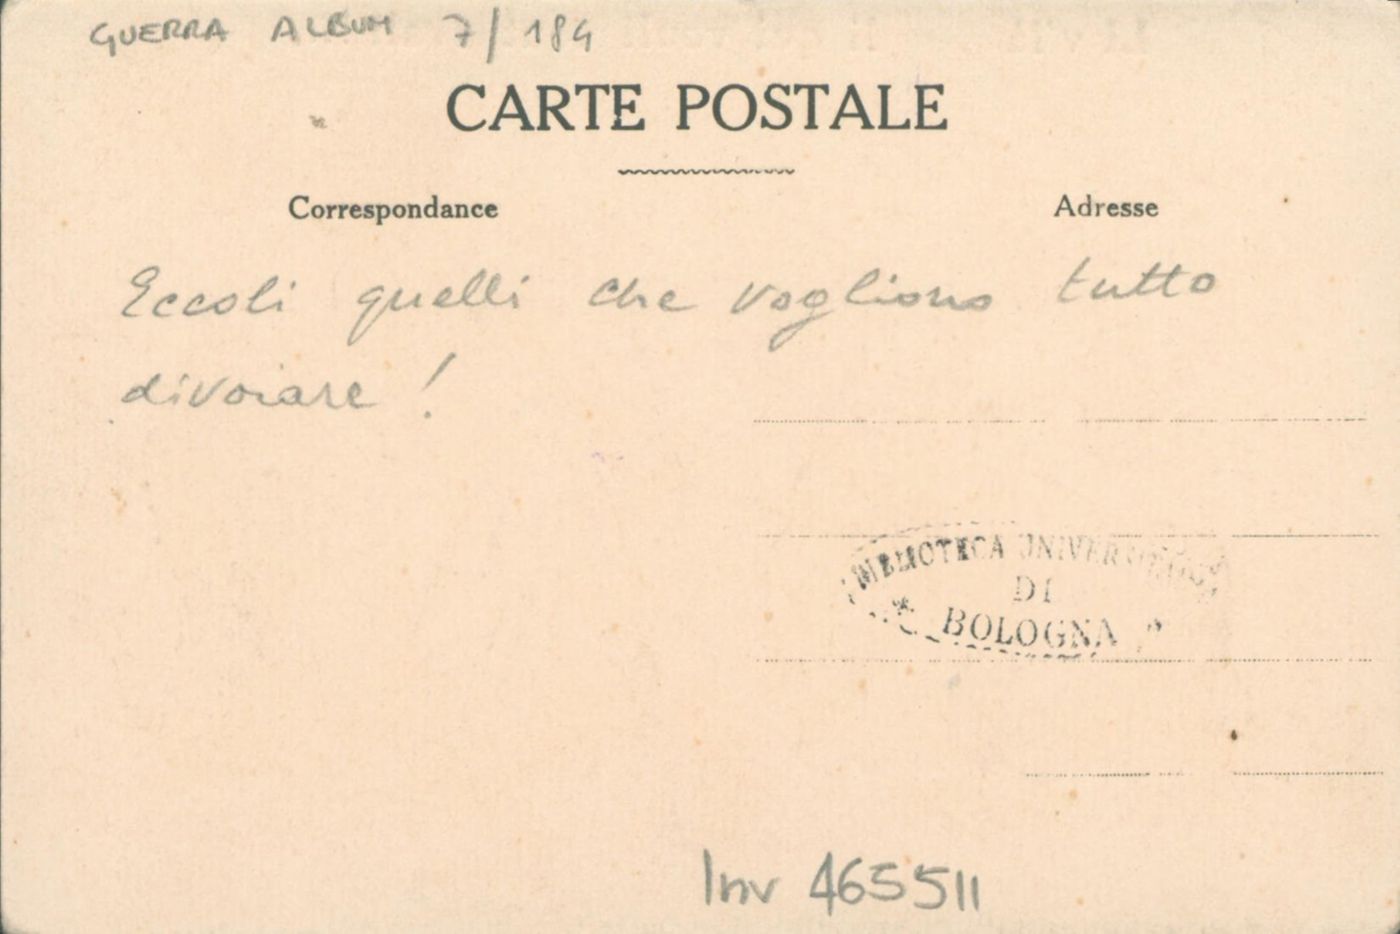 GUERRA ALBUM 7/184
CARTE POSTALE
Correspondance
Adresse
Eccoli quelli che vogliono tutto
divorare !
BIBLIOTECA UNIVERSITARIA
DI
* BOLOGNA *
Inv 465511